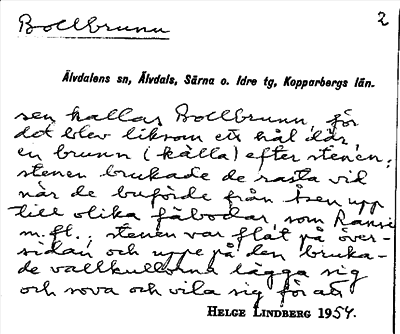 Bollbrunn 2
Älvdalens sn, Älvdals, Särna o. Idre tg, Kopparbergs län.
sen kallas Bollbrunn, för
det blev liksom ett hål där,
en brunn (källa) efter stenen,
stenen brukade de rasta vid
när de buförde från Åsen upp
till olika fäbodar, som
m.fl., stenen var flat på över-
sidan och uppe på den bruka-
de vallkullorna lägga sig
och sova och vila sig för att
HELGE LINDBERG 1954.